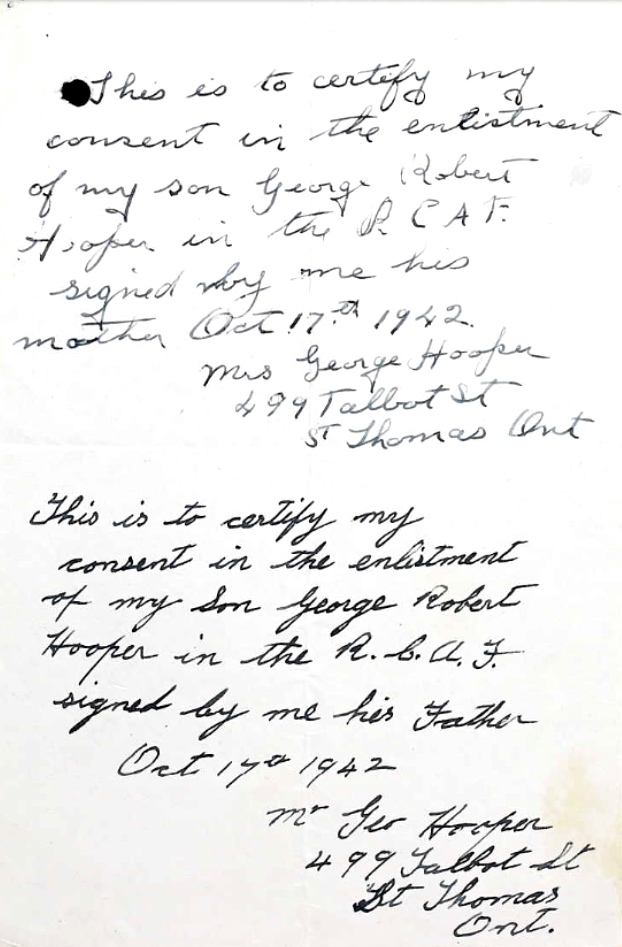 This is to certify my
consent in the enlistment
of my son George Robert
Hooper in the R. C A F.
signed by me his
mother Oct 17th 1942.
Mrs George Hooper
499 Talbot St
St Thomas Ont
This is to certify my
consent in the enlistment
of my Son George Robert
Hooper in the R. C. A. F.
signed by me his Father
Oct 17th 1942
Mr Geo Hooper
499 Talbot St
St Thomas
Ont.